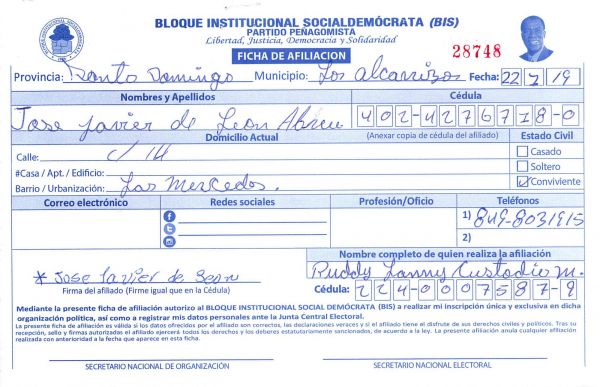 BLOQUE INSTITUCIONAL SOCIALDEMÓCRATA (BIS)
PARTIDO PEÑAGOMISTA
Libertad, Justicia, Democracia y Solidaridad
FICHA DE AFILIACION
28748
Provincia: Santo Domingo Municipio: Los alcarrizos Fecha: 22 / 1 / 19
Nombres y Apellidos Cédula
Jose Javier de Leon Abreu 402-4276718-0
Domicilio Actual (Anexar copia de cédula del afiliado) Estado Civil
Calle: c/ 14 Casado
#Casa / Apt. / Edificio: Soltero
Barrio / Urbanización: Las Mercedes. Conviviente
Correo electrónico Redes sociales Profesión/Oficio Teléfonos
1) 849-8031915
2)
Nombre completo de quien realiza la afiliación
* Jose Javier de Leon Ruddy Lanny Custodio M.
Firma del afiliado (Firme igual que en la Cédula) Cédula: 224-0007587-9
Mediante la presente ficha de afiliación autorizo al BLOQUE INSTITUCIONAL SOCIAL DEMÓCRATA (BIS) a realizar mi inscripción única y exclusiva en dicha
organización política, así como a registrar mis datos personales ante la Junta Central Electoral.
La presente ficha de afiliación es válida si los datos ofrecidos por el afiliado son correctos, las declaraciones veraces y si el afiliado tiene el disfrute de sus derechos civiles y políticos. Tras su
recepción, sello y firmas autorizadas el afiliado ejercerá todos los derechos y los deberes estatutariamente sancionados, de acuerdo a la ley. La presente afiliación anula cualquier afiliación
realizada con anterioridad a la fecha que aparece en esta ficha.
SECRETARIO NACIONAL DE ORGANIZACIÓN SECRETARIO NACIONAL ELECTORAL